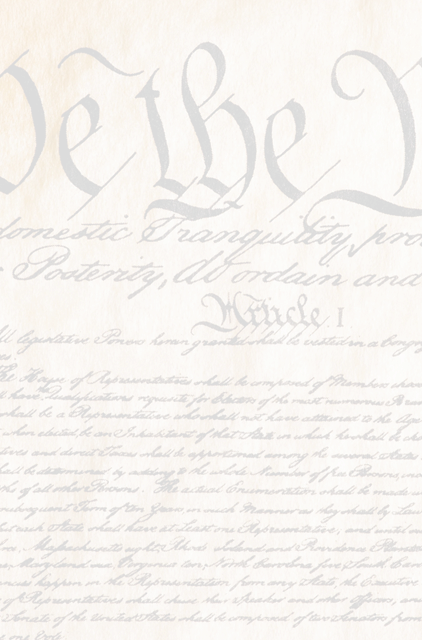 We the
domestic Tranquility, pro
Posterity, do ordain and
Article I
All legislative Powers herein granted shall be vested in a Congr
The House of Representatives shall be composed of Members chosen
have Qualifications requisite for Electors of the most numerous Bran
shall be a Representative who shall not have attained to the Age
when elected, be an Inhabitant of that State in which he shall be ch
tives and direct Taxes shall be apportioned among the several States
shall be determined by adding to the whole Number of free Persons, in
ths of all other Persons. The actual Enumeration shall be made w
subsequent Term of ten Years, in such Manner as they shall by Law
but each State shall have at Least one Representative; and until su
Massachusetts eight, Rhode Island and Providence Plantati
Maryland six, Virginia ten, North Carolina five, South Caro
happen in the Representation from any State, the Executive
of Representatives shall chuse their Speaker and other Officers; and
Senate of the United States shall be composed of two Senators from
one Vote.